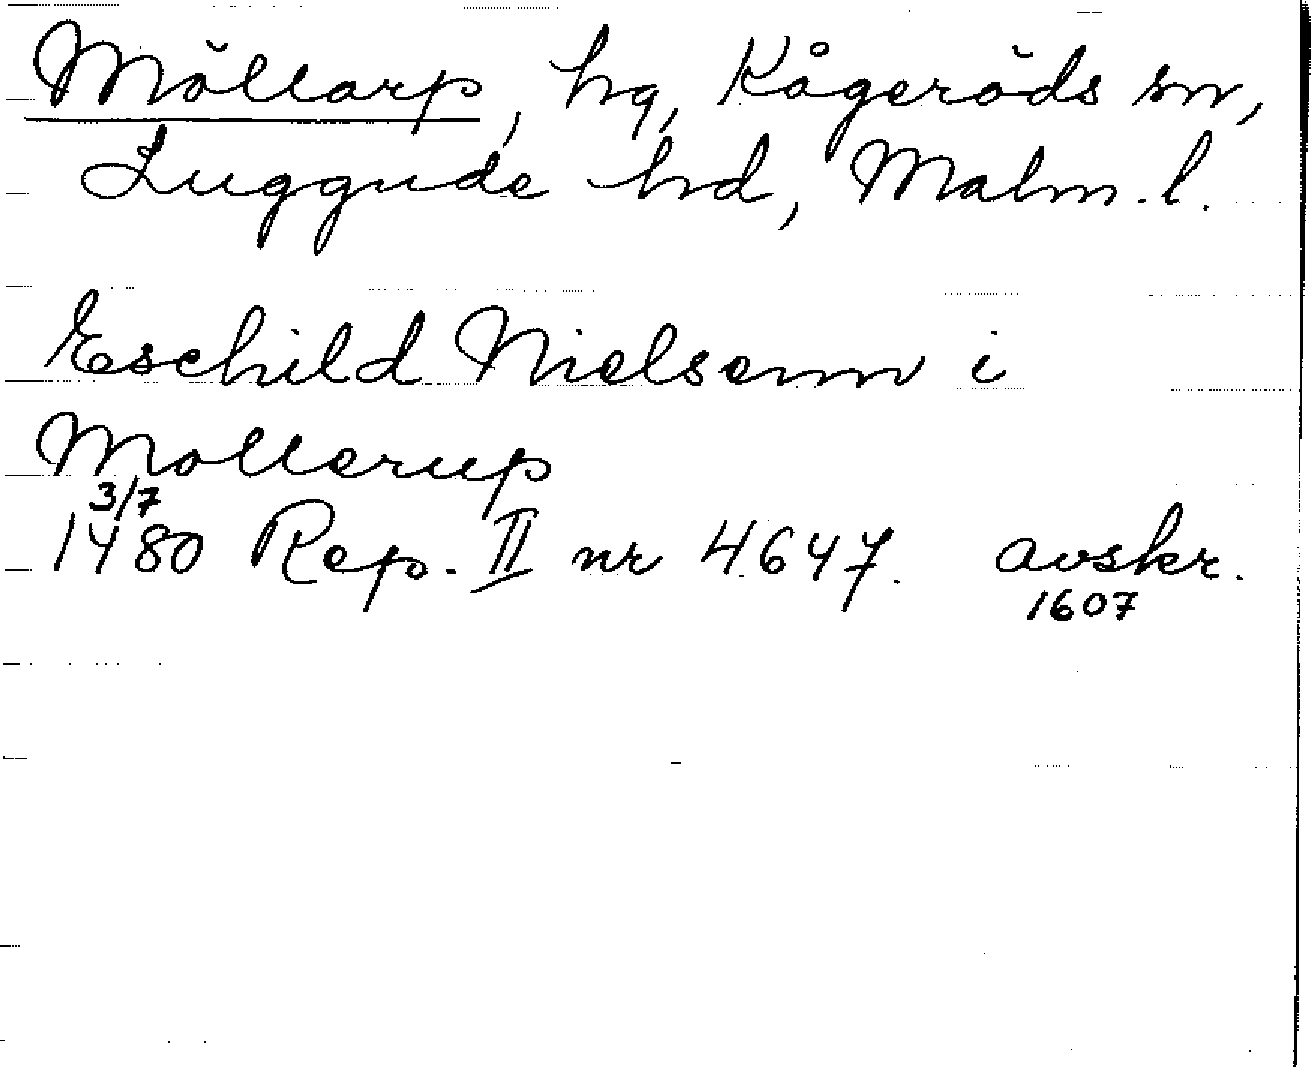 Möllarp, hg, Kågeröds sn,
Luggude hd, Malm. l.
Eschild Nielsenn i
Mollerup
3/7
1480 Rep. II nr 4647. avskr.
1607